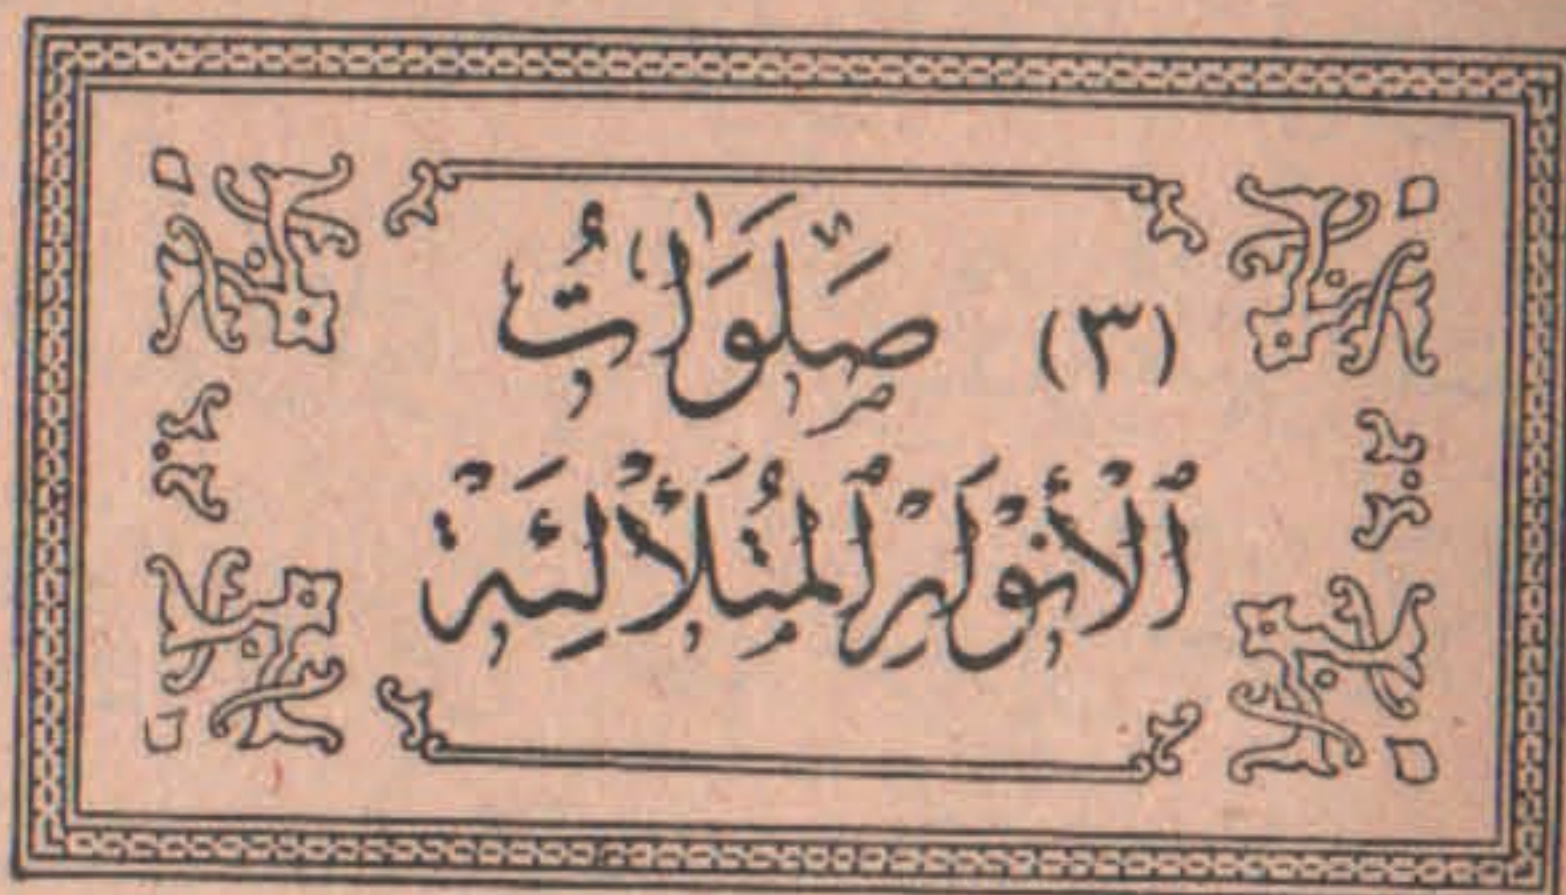 (٣) صَلَوَاتُ
ٱلْأَنْوَارِ ٱلْمُتَلَأْلِئَةْ